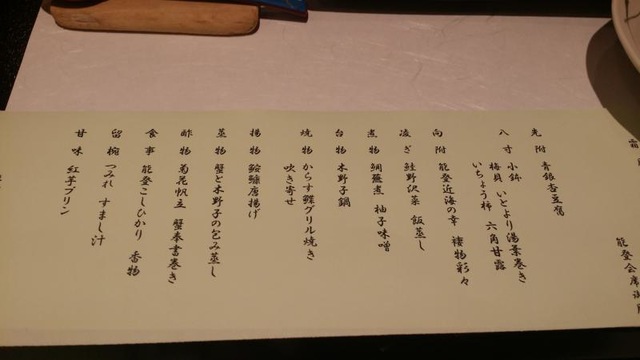 能登会席
先附 青銀杏豆腐
八寸 小鉢
梅貝 いとより湯葉巻き
いちょう柿 六角甘露
向附 能登近海の幸 褄物彩々
凌ぎ 鮭野沢菜 飯蒸し
煮物 鯛蕪煮 柚子味噌
台物 木野子鍋
焼物 からす鰈グリル焼き
吹き寄せ
揚物 鮟鱇唐揚げ
蒸物 蟹と木野子の包み蒸し
酢物 菊花帆立 蟹奉書巻き
食事 能登こしひかり 香物
留椀 つみれ すまし汁
甘味 紅芋プリン